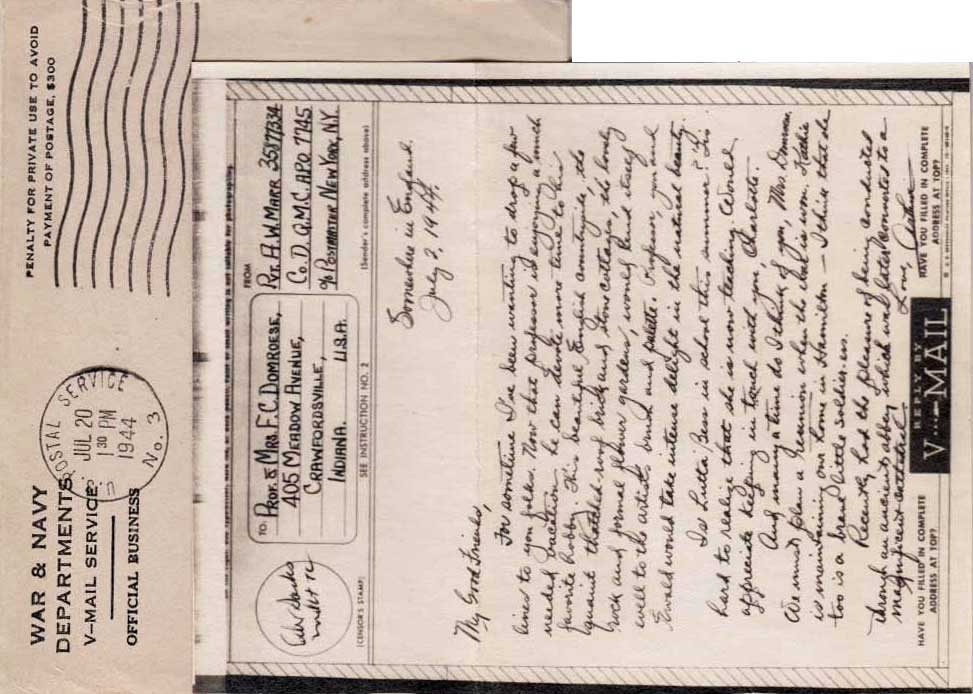 WAR & NAVY
DEPARTMENTS
V-MAIL SERVICE
OFFICIAL BUSINESS
POSTAL SERVICE
JUL 20
1 30 PM
1944
No. 3
PENALTY FOR PRIVATE USE TO AVOID
PAYMENT OF POSTAGE, $300
(CENSOR'S STAMP)
TO:
PROF. & MRS. F. C. DOMROESE,
405 MEADOW AVENUE,
CRAWFORDSVILLE,
INDIANA. U.S.A.
SEE INSTRUCTION NO. 2
FROM
PVT. A. W. MARR 35877334
CO. D. Q.M.C. A.P.O. 7745
% POSTMASTER NEW YORK, N.Y.
(Sender's complete address above)
Somewhere in England
July 3, 1944.
My Good Friends,
For sometime I've been wanting to drop a few
lines to you folks. Now that professor is enjoying a much
needed vacation, he can devote more time to his
favorite hobby. This beautiful English countryside, the
quaint thatched-roof brick and stone cottages, the lovely
rock and formal flower gardens, would lend itself
well to the artist's brush and palette. Professor, you and
Ewald would take intense delight in the natural beauty.
Is Lutta Bess in school this summer? It is
hard to realize that she is now teaching. Would
appreciate keeping in touch with you, Charlotte.
And many a time do I think of you, Mrs. Domroese.
We must plan a reunion when the battle is won.
is maintaining our home in Hamilton — I think that she
too is a brave little soldier.
Recently had the pleasure of being conducted
through an ancient abbey which was later converted to a
magnificent cathedral.
Love, Arthur
HAVE YOU FILLED IN COMPLETE
ADDRESS AT TOP?
REPLY BY
V···—MAIL
HAVE YOU FILLED IN COMPLETE
ADDRESS AT TOP?